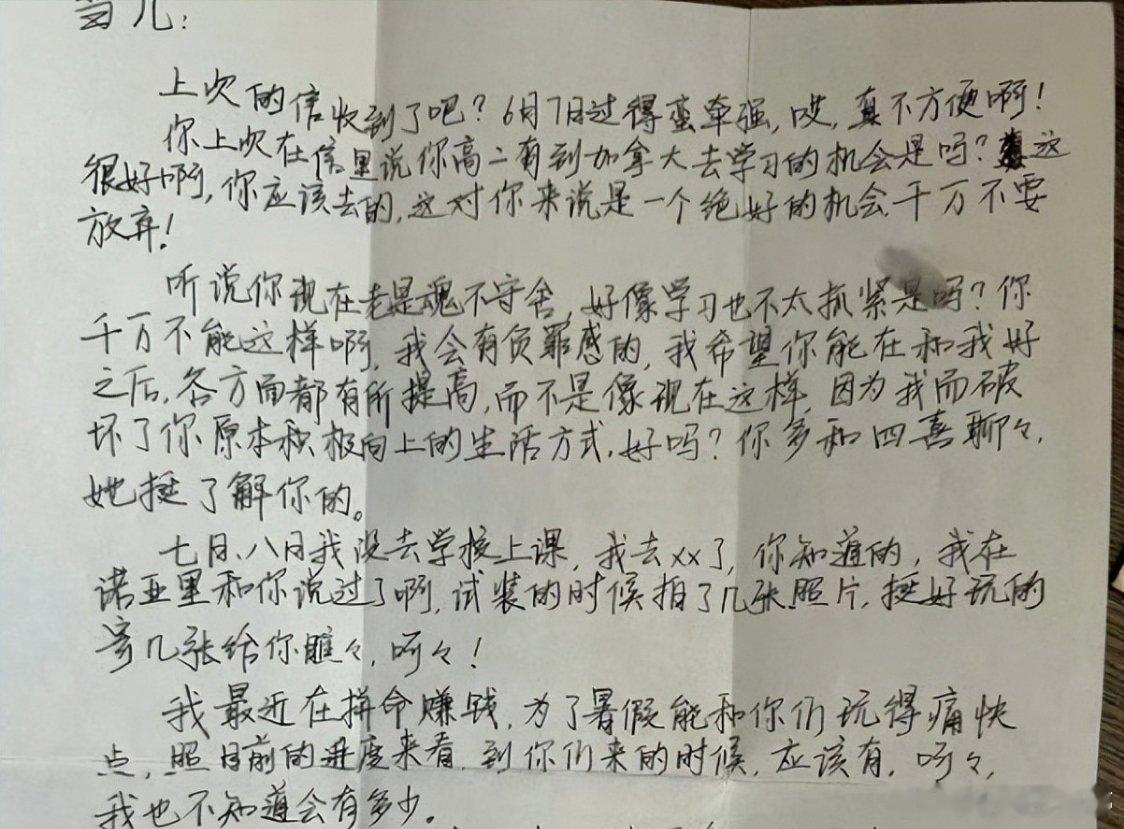 上次的信收到了吧？6月7日过得蛮牵强，哎，真不方便啊！
你上次在信里说你高二有到加拿大去学习的机会是吗？这
很好啊，你应该去的，这对你来说是一个绝好的机会，千万不要
放弃！
听说你现在老是魂不守舍，好像学习也不太抓紧是吗？你
千万不能这样啊，我会有负罪感的，我希望你能在和我好
之后，各方面都有所提高，而不是像现在这样，因为我而破
坏了你原本积极向上的生活方式，好吗？你多和四喜聊々，
她挺了解你的。
七日、八日我没去学校上课，我去xx了，你知道的，我在
诺亚里和你说过了啊，试装的时候拍了几张照片，挺好玩的
寄几张给你瞧々，呵々！
我最近在拼命赚钱，为了暑假能和你们玩得痛快
点，照目前的进度来看，到你们来的时候，应该有，呵々，
我也不知道会有多少。